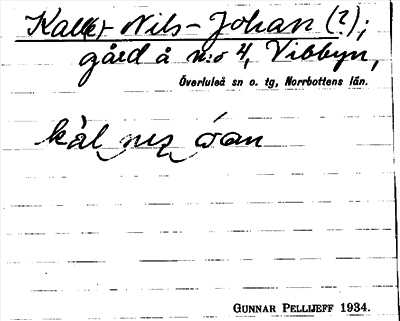 Kaller-Nils-Johan (?);
gård å n:o 4, Vibbyn,
Överluleå sn o. tg, Norrbottens län.
kàl nıs óan
GUNNAR PELLIJEFF 1934.